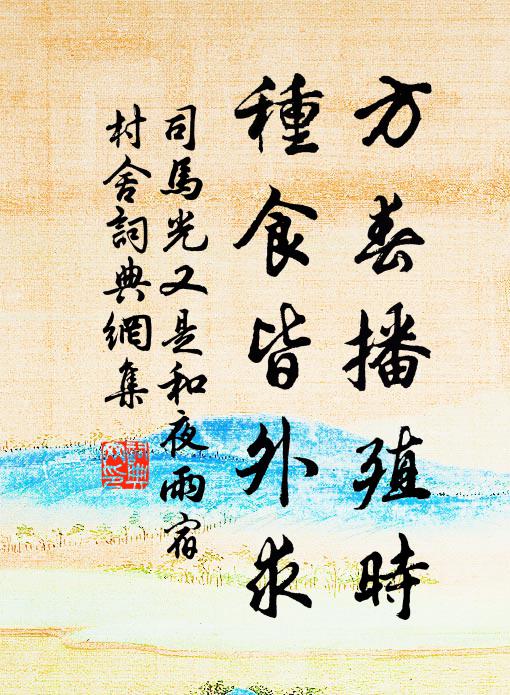 方春播殖時
種食皆外求
司馬光又是和夜雨宿
村舍詞典網集